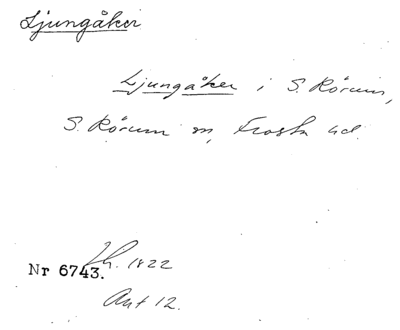 Ljungåker
Ljungåker i S. Rörum,
S. Rörum sn, Frosta hd.
Nr 6743. Jh. 1822
Ant 12.